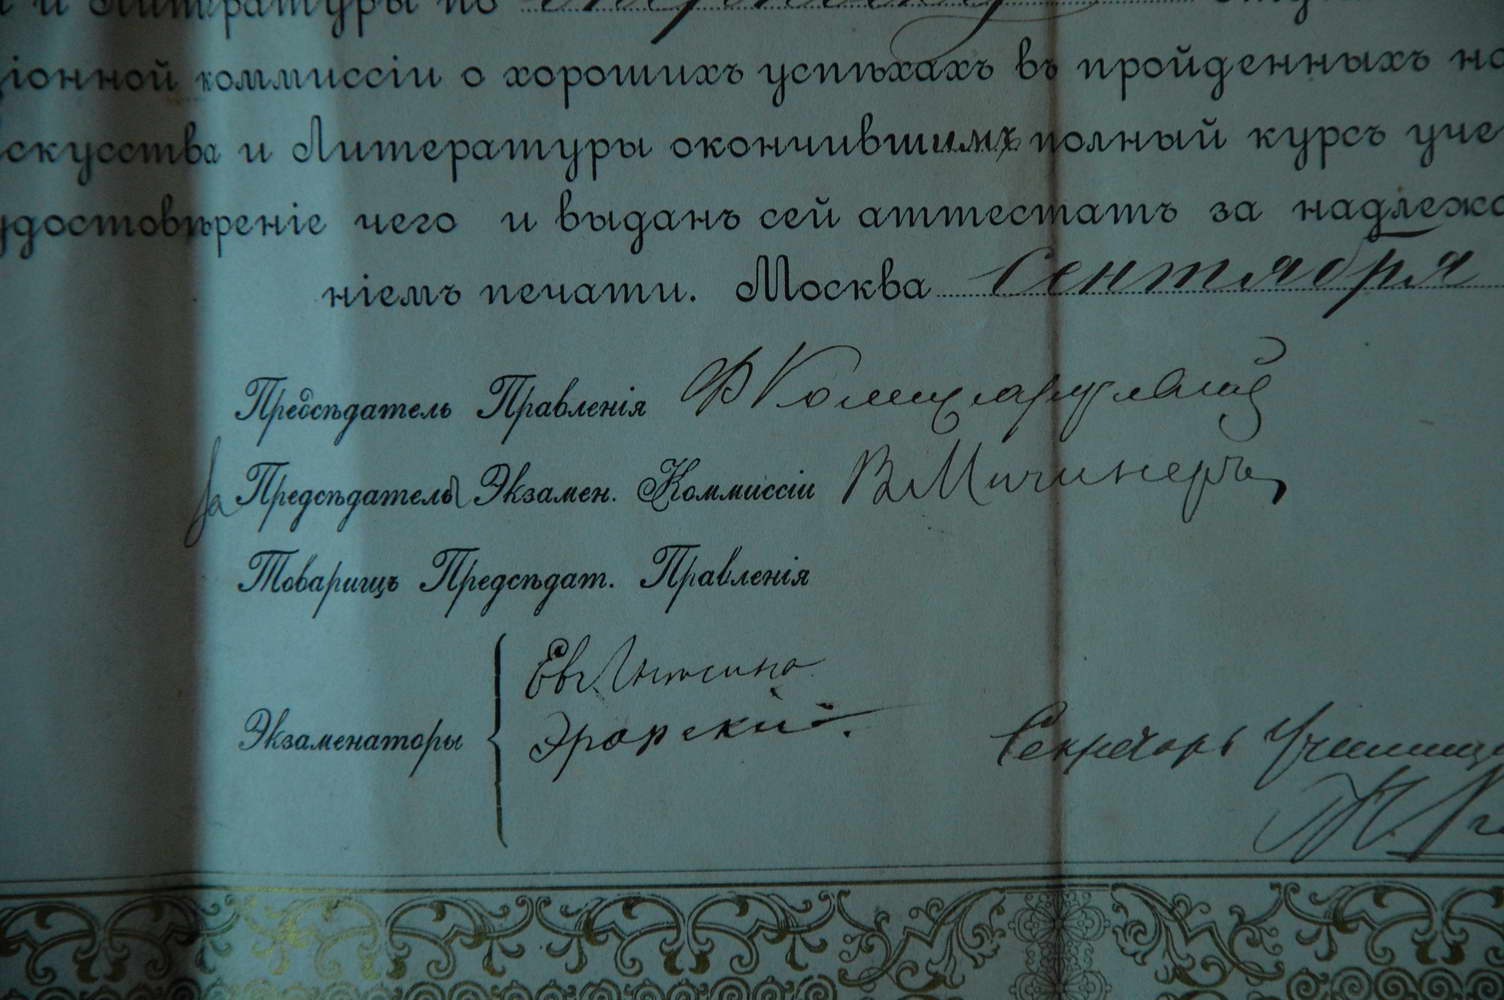 и Литературы по
ціонной коммиссіи о хорошихъ успѣхахъ въ пройденныхъ
искусства и Литературы окончившимъ полный курсъ уче-
удостовѣреніе чего и выданъ сей аттестатъ за надлежа
ніемъ печати. Москва Сентября
Предсѣдатель Правленія Ѳ Коммиссаржевскій
За Предсѣдателя Экзамен. Коммиссіи В Мичинеръ
Товарищъ Предсѣдат. Правленія
Экзаменаторы
Евг.
Эрарскій.
Секретарь Училища